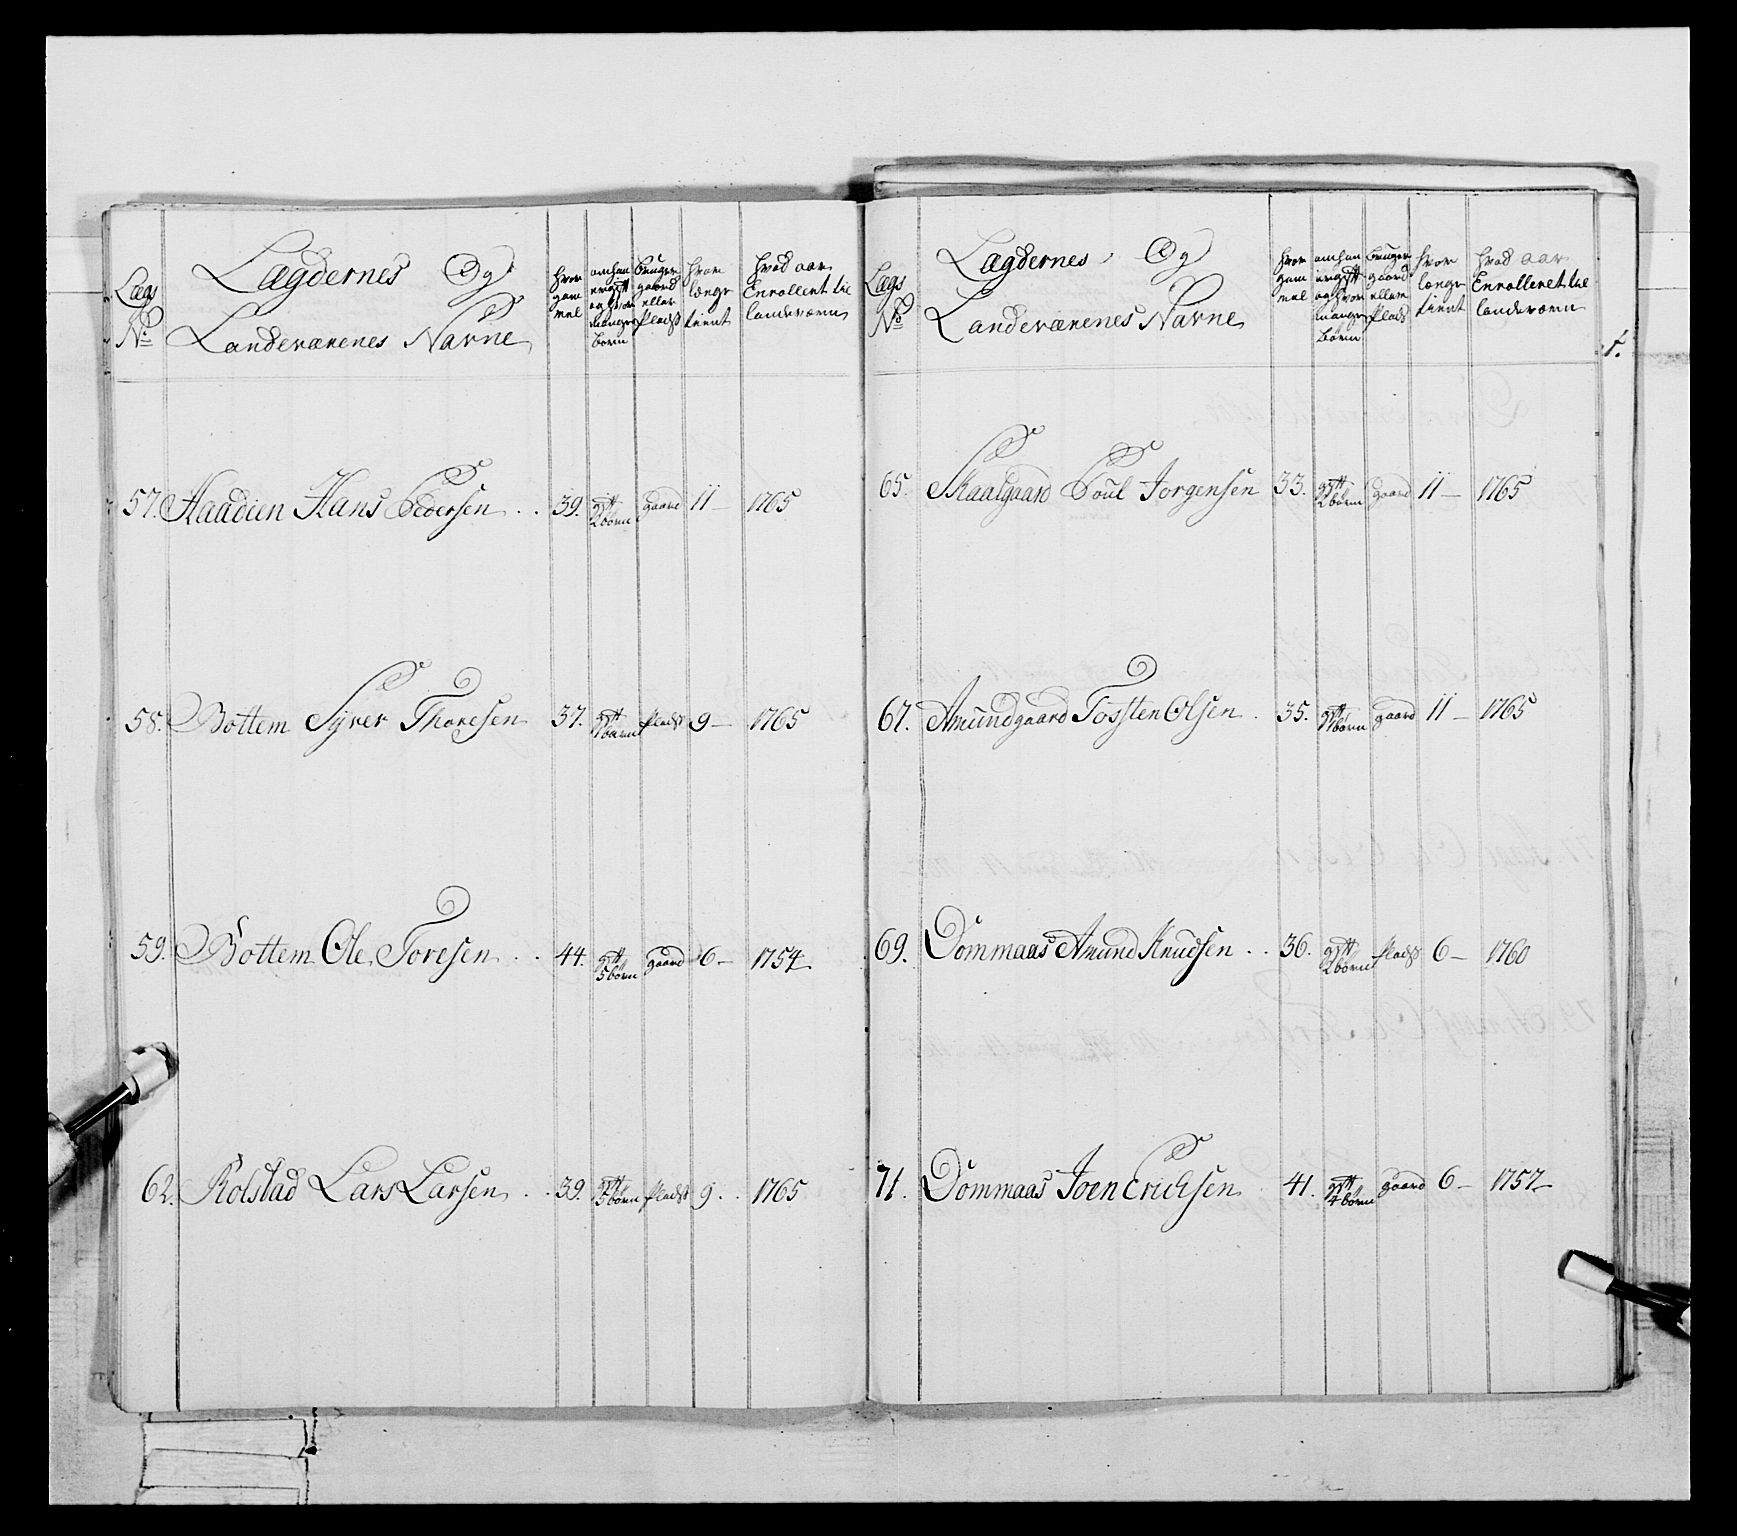 Lægs
No
Lægdernes Og
Landeværenes Navne
hvor
gam
mel
om han
er gift
og hvor
mange
børn
bruger
gaard
eller
plads
hvor
længe
tient
hvad aar
Enrolleret til
landeværn
57. Haadien Hans Pedersen . . 39. gift 2 børn gaard 11 — 1765
58. Bottem Syver Thoresen 37. gift 1 barn plads 9 — 1765
59. Bottem Ole Toresen . . 44. gift 5 børn gaard 6 — 1754
62. Rolstad Lars Larsen . . 39. gift 5 børn plads 9 . 1765
Lægs
No
Lægdernes Og
Landeværenes Navne
hvor
gam
mel
om han
er gift
og hvor
mange
børn
bruger
gaard
eller
plads
hvor
længe
tient
hvad aar
Enrolleret til
landeværn
65. Skaalgaard Poul Jorgensen 33. gift 2 børn gaard 11 — 1765
67. Amundgaard Tossten Olsen . 35. gift 1 børn gaard 11 — 1765
69. Dommaas Amund Knudsen . . 36. gift 2 børn plads 6 — 1760
71. Dommaas Joen Erichsen . 41. gift 4 børn gaard 6 — 1757